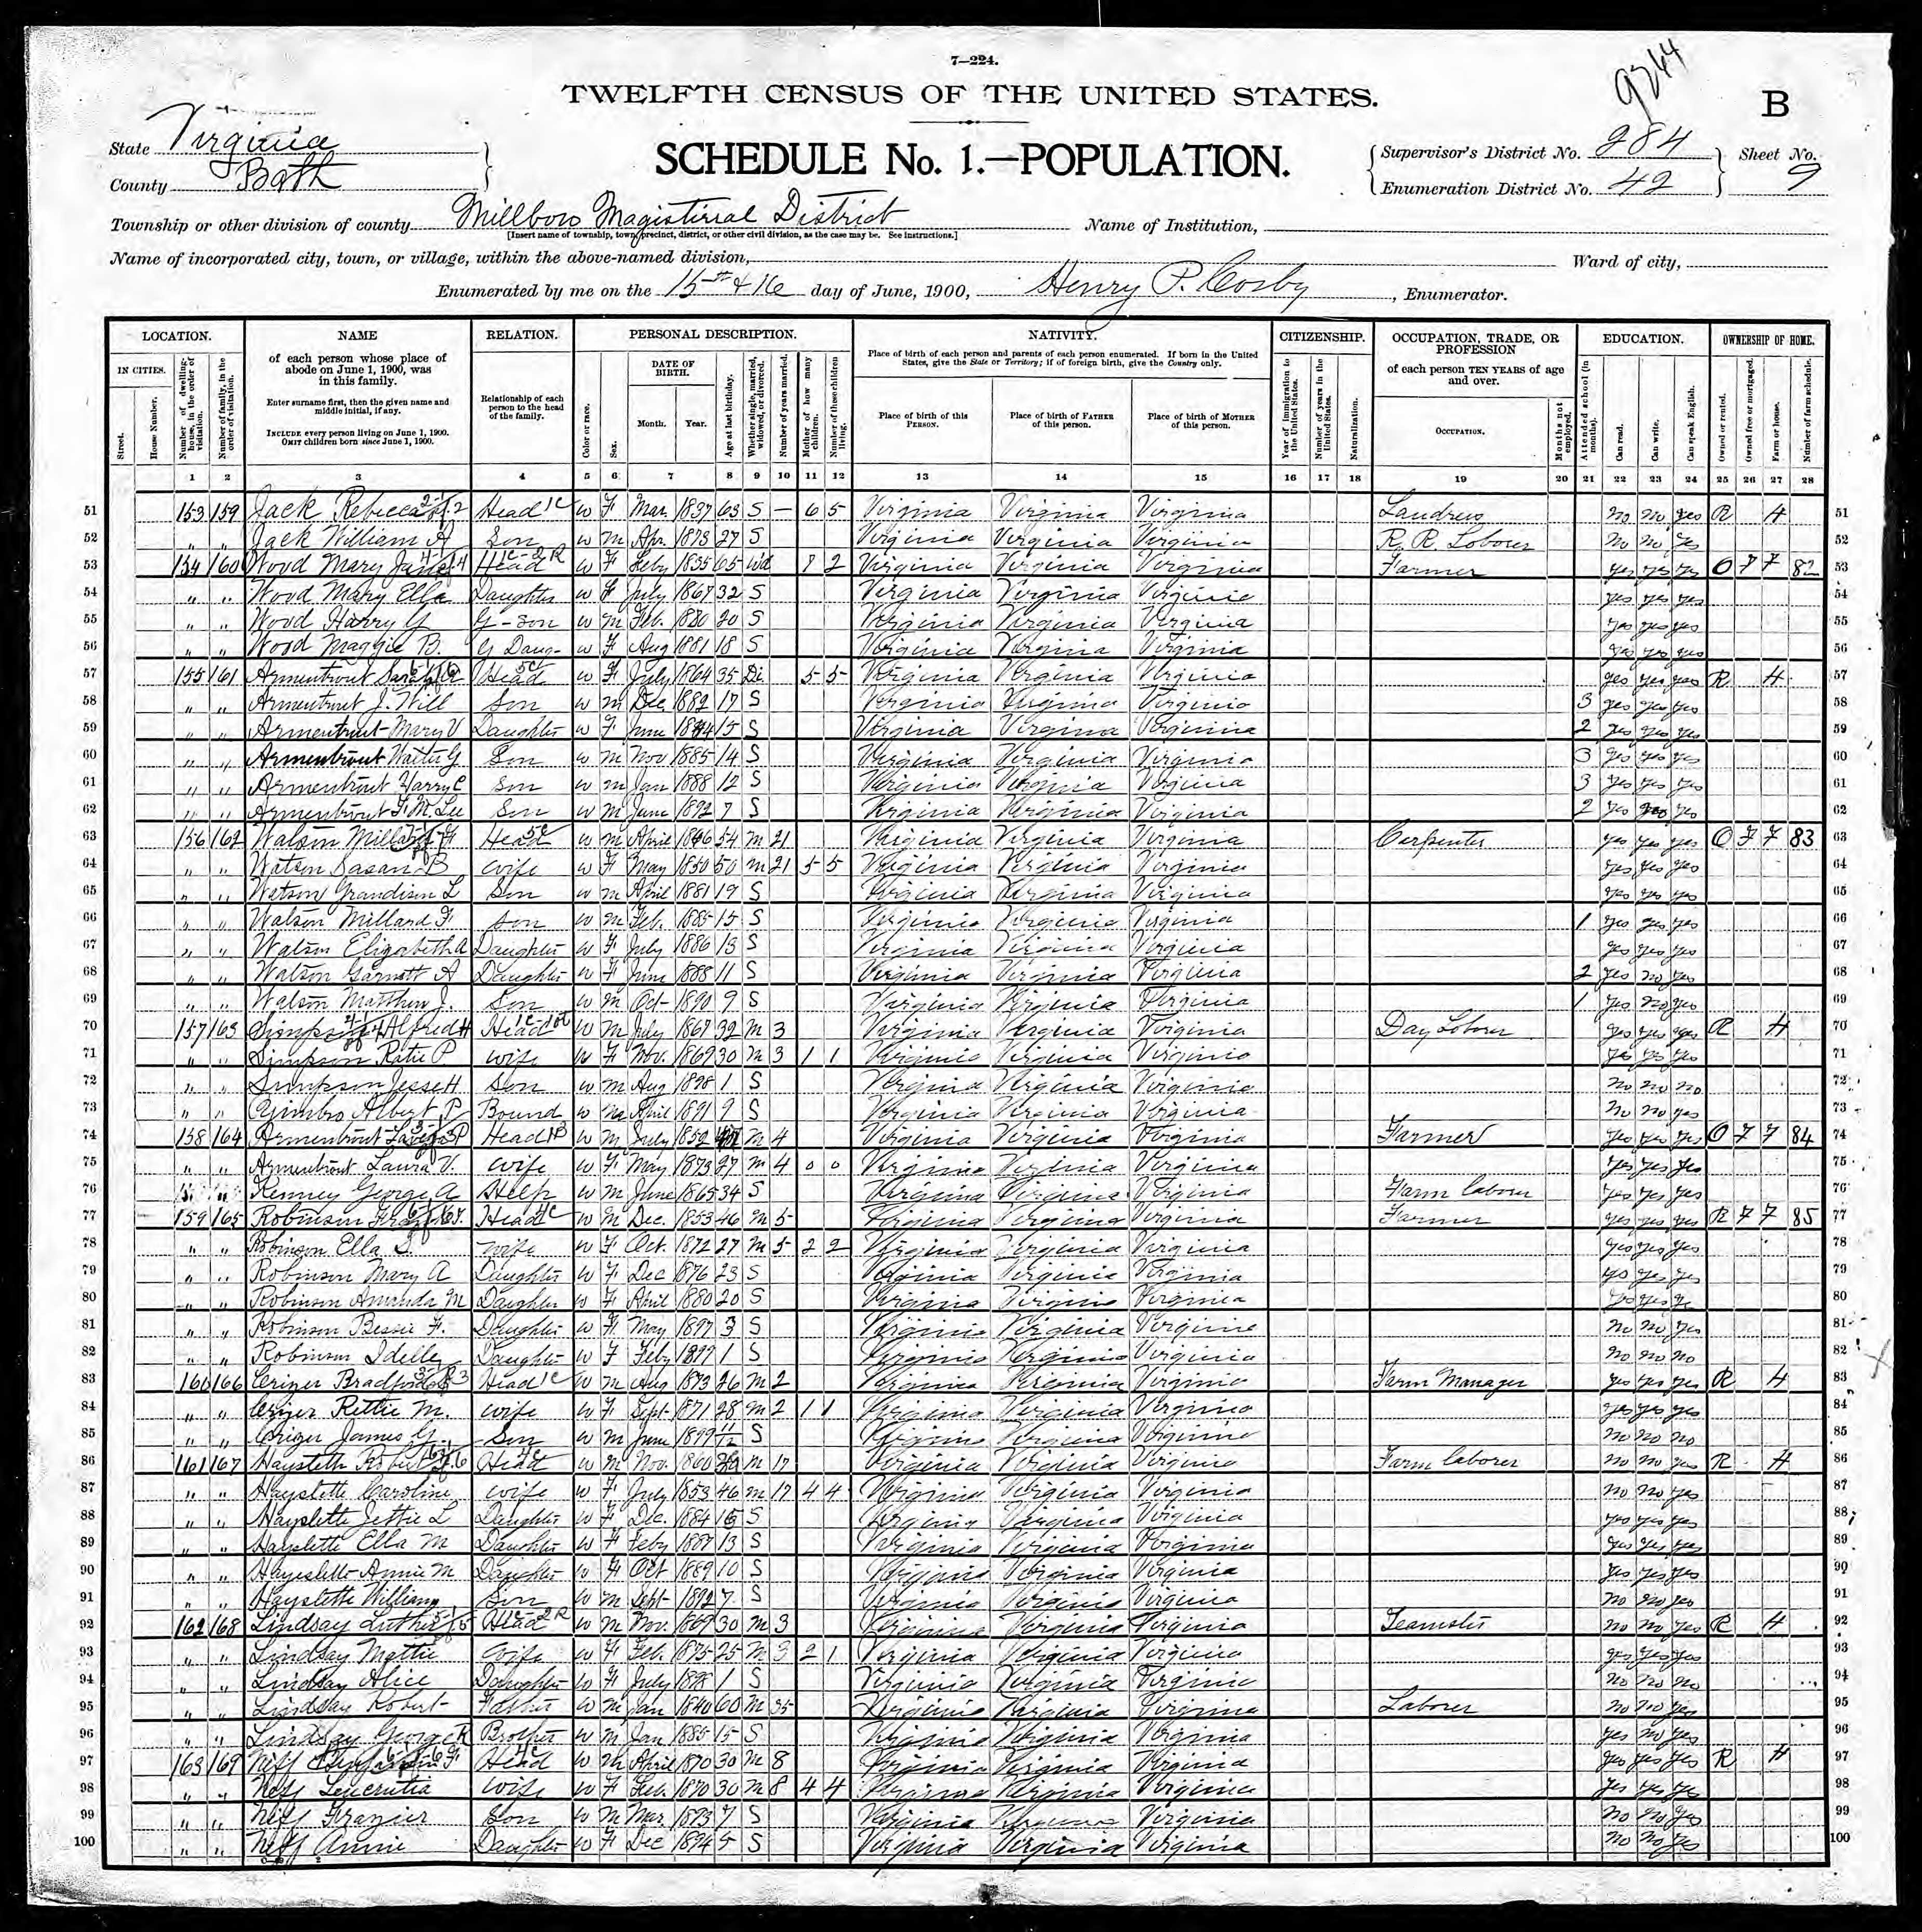 7—224.
9264
TWELFTH CENSUS OF THE UNITED STATES.
B
State Virginia
County Bath
SCHEDULE No. 1.—POPULATION.
Supervisor's District No. 284
Enumeration District No. 42
Sheet No. 9
Township or other division of county Millboro Magisterial District
[Insert name of township, town, precinct, district, or other civil division, as the case may be. See instructions.]
Name of Institution,
Name of incorporated city, town, or village, within the above-named division,
Ward of city,
Enumerated by me on the 15th & 16 day of June, 1900, Henry P. Cosby, Enumerator.
LOCATION. NAME RELATION. PERSONAL DESCRIPTION. NATIVITY. CITIZENSHIP. OCCUPATION, TRADE, OR PROFESSION EDUCATION. OWNERSHIP OF HOME.
IN CITIES.
Street.
House Number.
Number of dwelling-house, in the order of visitation.
Number of family, in the order of visitation.
of each person whose place of abode on June 1, 1900, was in this family.
Enter surname first, then the given name and middle initial, if any.
INCLUDE every person living on June 1, 1900.
OMIT children born since June 1, 1900.
Relationship of each person to the head of the family.
Color or race.
Sex.
DATE OF BIRTH.
Month. Year.
Age at last birthday.
Whether single, married, widowed, or divorced.
Number of years married.
Mother of how many children.
Number of these children living.
Place of birth of each person and parents of each person enumerated. If born in the United States, give the State or Territory; if of foreign birth, give the Country only.
Place of birth of this PERSON.
Place of birth of FATHER of this person.
Place of birth of MOTHER of this person.
Year of immigration to the United States.
Number of years in the United States.
Naturalization.
of each person TEN YEARS of age and over.
OCCUPATION.
Months not employed.
Attended school (in months).
Can read.
Can write.
Can speak English.
Owned or rented.
Owned free or mortgaged.
Farm or house.
Number of farm schedule.
1 2 3 4 5 6 7 8 9 10 11 12 13 14 15 16 17 18 19 20 21 22 23 24 25 26 27 28
51 153 159 Jack Rebecca Head W F Mar. 1837 63 S — 6 5 Virginia Virginia Virginia no no yes R H 51
52 " " Jack William A Son W M Apr. 1873 27 S Virginia Virginia Virginia R. R. Laborer no no yes 52
53 154 160 Wood Mary Jane Head W F Feby 1835 65 Wd 8 2 Virginia Virginia Virginia Farmer yes yes yes O F F 82 53
54 " " Wood Mary Ella Daughter W F July 1867 32 S Virginia Virginia Virginia yes yes yes 54
55 " " Wood Harry G G-Son W M Feb. 1880 20 S Virginia Virginia Virginia yes yes yes 55
56 " " Wood Maggie B. G Daug- W F Aug 1881 18 S Virginia Virginia Virginia yes yes yes 56
57 155 161 Armentrout Head W F July 1864 35 Di 5 5 Virginia Virginia Virginia yes yes yes R H 57
58 " " Armentrout J. Will Son W M Dec 1882 17 S Virginia Virginia Virginia 3 yes yes yes 58
59 " " Armentrout Mary V Daughter W F June 1884 15 S Virginia Virginia Virginia 2 yes yes yes 59
60 " " Armentrout Walter G Son W M Nov 1885 14 S Virginia Virginia Virginia 3 yes yes yes 60
61 " " Armentrout Harry C Son W M Jan 1888 12 S Virginia Virginia Virginia 3 yes yes yes 61
62 " " Armentrout Lee Son W M June 1892 7 S Virginia Virginia Virginia 2 yes yes 62
63 156 162 Watson Millard F Head W M April 1846 54 M 21 Virginia Virginia Virginia Carpenter yes yes yes O F F 83 63
64 " " Watson Susan B Wife W F May 1850 50 M 21 5 5 Virginia Virginia Virginia yes yes yes 64
65 " " Watson Grandison L Son W M April 1881 19 S Virginia Virginia Virginia yes yes yes 65
66 " " Watson Millard F. Son W M Feb. 1885 15 S Virginia Virginia Virginia 1 yes yes yes 66
67 " " Watson Elizabeth A Daughter W F July 1886 13 S Virginia Virginia Virginia yes yes yes 67
68 " " Watson Garnett A Daughter W F June 1888 11 S Virginia Virginia Virginia 2 yes no yes 68
69 " " Watson Matthew J. Son W M Oct 1890 9 S Virginia Virginia Virginia 1 yes no yes 69
70 157 163 Simpson Alfred H Head W M July 1867 32 M 3 Virginia Virginia Virginia Day Laborer yes yes yes R H 70
71 " " Simpson Katie P Wife W F Nov. 1869 30 M 3 1 1 Virginia Virginia Virginia yes yes yes 71
72 " " Simpson Jesse H Son W M Aug 1898 1 S Virginia Virginia Virginia no no no 72
73 " " Albert P Bound W M April 1891 9 S Virginia Virginia Virginia no no yes 73
74 158 164 Armentrout Head W M July 1852 M 4 Virginia Virginia Virginia Farmer yes yes yes O F F 84 74
75 " " Armentrout Laura V. Wife W F May 1873 27 M 4 0 0 Virginia Virginia Virginia yes yes yes 75
76 Kenney George A Help W M June 1865 34 S Virginia Virginia Virginia Farm laborer yes yes yes 76
77 159 165 Robinson Head W M Dec. 1853 46 M 5 Virginia Virginia Virginia Farmer yes yes yes R F F 85 77
78 " " Robinson Ella Wife W F Oct. 1872 27 M 5 2 2 Virginia Virginia Virginia yes yes yes 78
79 " " Robinson Mary A Daughter W F Dec 1876 23 S Virginia Virginia Virginia yes yes yes 79
80 " " Robinson Amanda M Daughter W F April 1880 20 S Virginia Virginia Virginia yes 80
81 " " Robinson Bessie F. Daughter W F May 1897 3 S Virginia Virginia Virginia no no yes 81
82 " " Robinson Idella Daughter W F Feby 1899 1 S Virginia Virginia Virginia no no no 82
83 160 166 Crizer Bradford Head W M Aug 1873 26 M 2 Virginia Virginia Virginia Farm Manager yes yes yes R H 83
84 " " Crizer Rettie M. Wife W F Sept 1871 28 M 2 1 1 Virginia Virginia Virginia yes yes yes 84
85 " " Crizer James G Son W M June 1899 11/12 S Virginia Virginia Virginia no no no 85
86 161 167 Hayslette Robert Head W M Nov. 1860 39 M 17 Virginia Virginia Virginia Farm laborer no no yes R H 86
87 " " Hayslette Caroline Wife W F July 1853 46 M 17 4 4 Virginia Virginia Virginia no no yes 87
88 " " Hayslette Jettie L Daughter W F Dec. 1884 15 S Virginia Virginia Virginia yes yes yes 88
89 " " Hayslette Ella M Daughter W F Feby 1887 13 S Virginia Virginia Virginia yes yes yes 89
90 " " Hayslette Annie M Daughter W F Oct 1889 10 S Virginia Virginia Virginia yes yes yes 90
91 " " Hayslette William Son W M Sept 1892 7 S Virginia Virginia Virginia no no yes 91
92 162 168 Lindsay Luther Head W M Nov. 1869 30 M 3 Virginia Virginia Virginia Teamster no no yes R H 92
93 " " Lindsay Mattie Wife W F Feb. 1875 25 M 3 2 1 Virginia Virginia Virginia yes yes yes 93
94 " " Lindsay Alice Daughter W F July 1898 1 S Virginia Virginia Virginia no no no 94
95 " " Lindsay Robert Father W M Jan 1840 60 M 35 Virginia Virginia Virginia Laborer no no yes 95
96 " " Lindsay George R Brother W M Jan 1885 15 S Virginia Virginia Virginia yes no yes 96
97 163 169 Neff Benjamin F Head W M April 1870 30 M 8 Virginia Virginia Virginia yes yes yes R H 97
98 " " Neff Wife W F Feb. 1870 30 M 8 4 4 Virginia Virginia Virginia yes yes yes 98
99 " " Neff Frazier Son W M Mar. 1893 7 S Virginia Virginia Virginia no no yes 99
100 " " Neff Annie Daughter W F Dec 1894 5 S Virginia Virginia Virginia no no yes 100